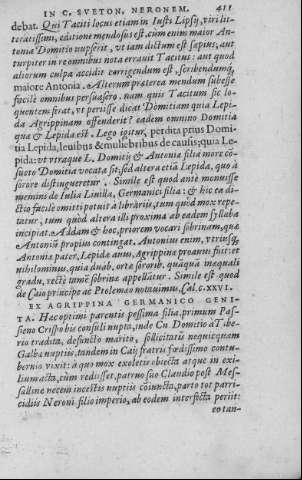 IN C. SVETON. NERONEM. 411
debat. Qui Taciti locus etiam in Iusti Lipsij, viri lit-
teratissimi, editione mendosus est. cùm enim maior An-
tonia Domitio nupserit, vt iam dictum est sæpius, aut
turpiter in re omnibus nota erravit Tacitus: aut quod
aliorum culpa accidit corrigendum est, scribendumq́;
maiore Antonia. Alterum præterea mendum subesse
facilè omnibus persuasero. nam quis Tacitum sic lo-
quentem ferat, vt perisse dicat Domitiam quia Lepi-
da Agrippinam offenderit? eadem omnino Domitia
quæ & Lepida est. Lego igitur, perdita prius Domi-
tia Lepida, leuibus & muliebribus de causis; quia Le-
pida: vt vtraque L. Domitij & Antoniæ filia more cō-
sueto Domitia vocata sit: sed altera etiā Lepida, quo à
sorore distingueretur. Simile est quod antè monuisse
memini de Iulia Liuilla, Germanici filia: & hic ea di-
ctio facilè omitti potuit à librarijs, tum quòd mox repe-
tatur, tum quòd altera illi proxima ab eadem syllaba
incipiat. Addam & hoc, priorem vocari sobrinam, quæ
Antoniū propius contingat. Antonius enim, vtriusq́;
Antoniæ pater, Lepidæ auus, Agrippinæ proauus fuit: et
nihilominus, quia duab. ortæ sororib. quāquā inæquali
gradu, rectè tamē sobrinæ appellātur. Simile est quod
de Caio principe ac Ptolemæo notauimus, Cal. c. XXVI.
EX AGRIPPINA GERMANICO GENI-
TA. Hæc optimi parentis pessima filia, primum Pas-
sieno Crispo bis consuli nupta, inde Cn Domitio à Tibe-
rio tradita, defuncto marito, sollicitatis nequicquam
Galbæ nuptiis, tandem in Caij fratris fœdissimo contu-
bernio vixit: à quo mox exoletis obiecta atque in exi-
lium acta, cùm redijsset, patruo suo Claudio post Mes-
salline necem incestis nuptiis coiuncta, parto tot parri-
cidiis Neroni filio imperio, ab eodem interfecta periit:
eo tan-